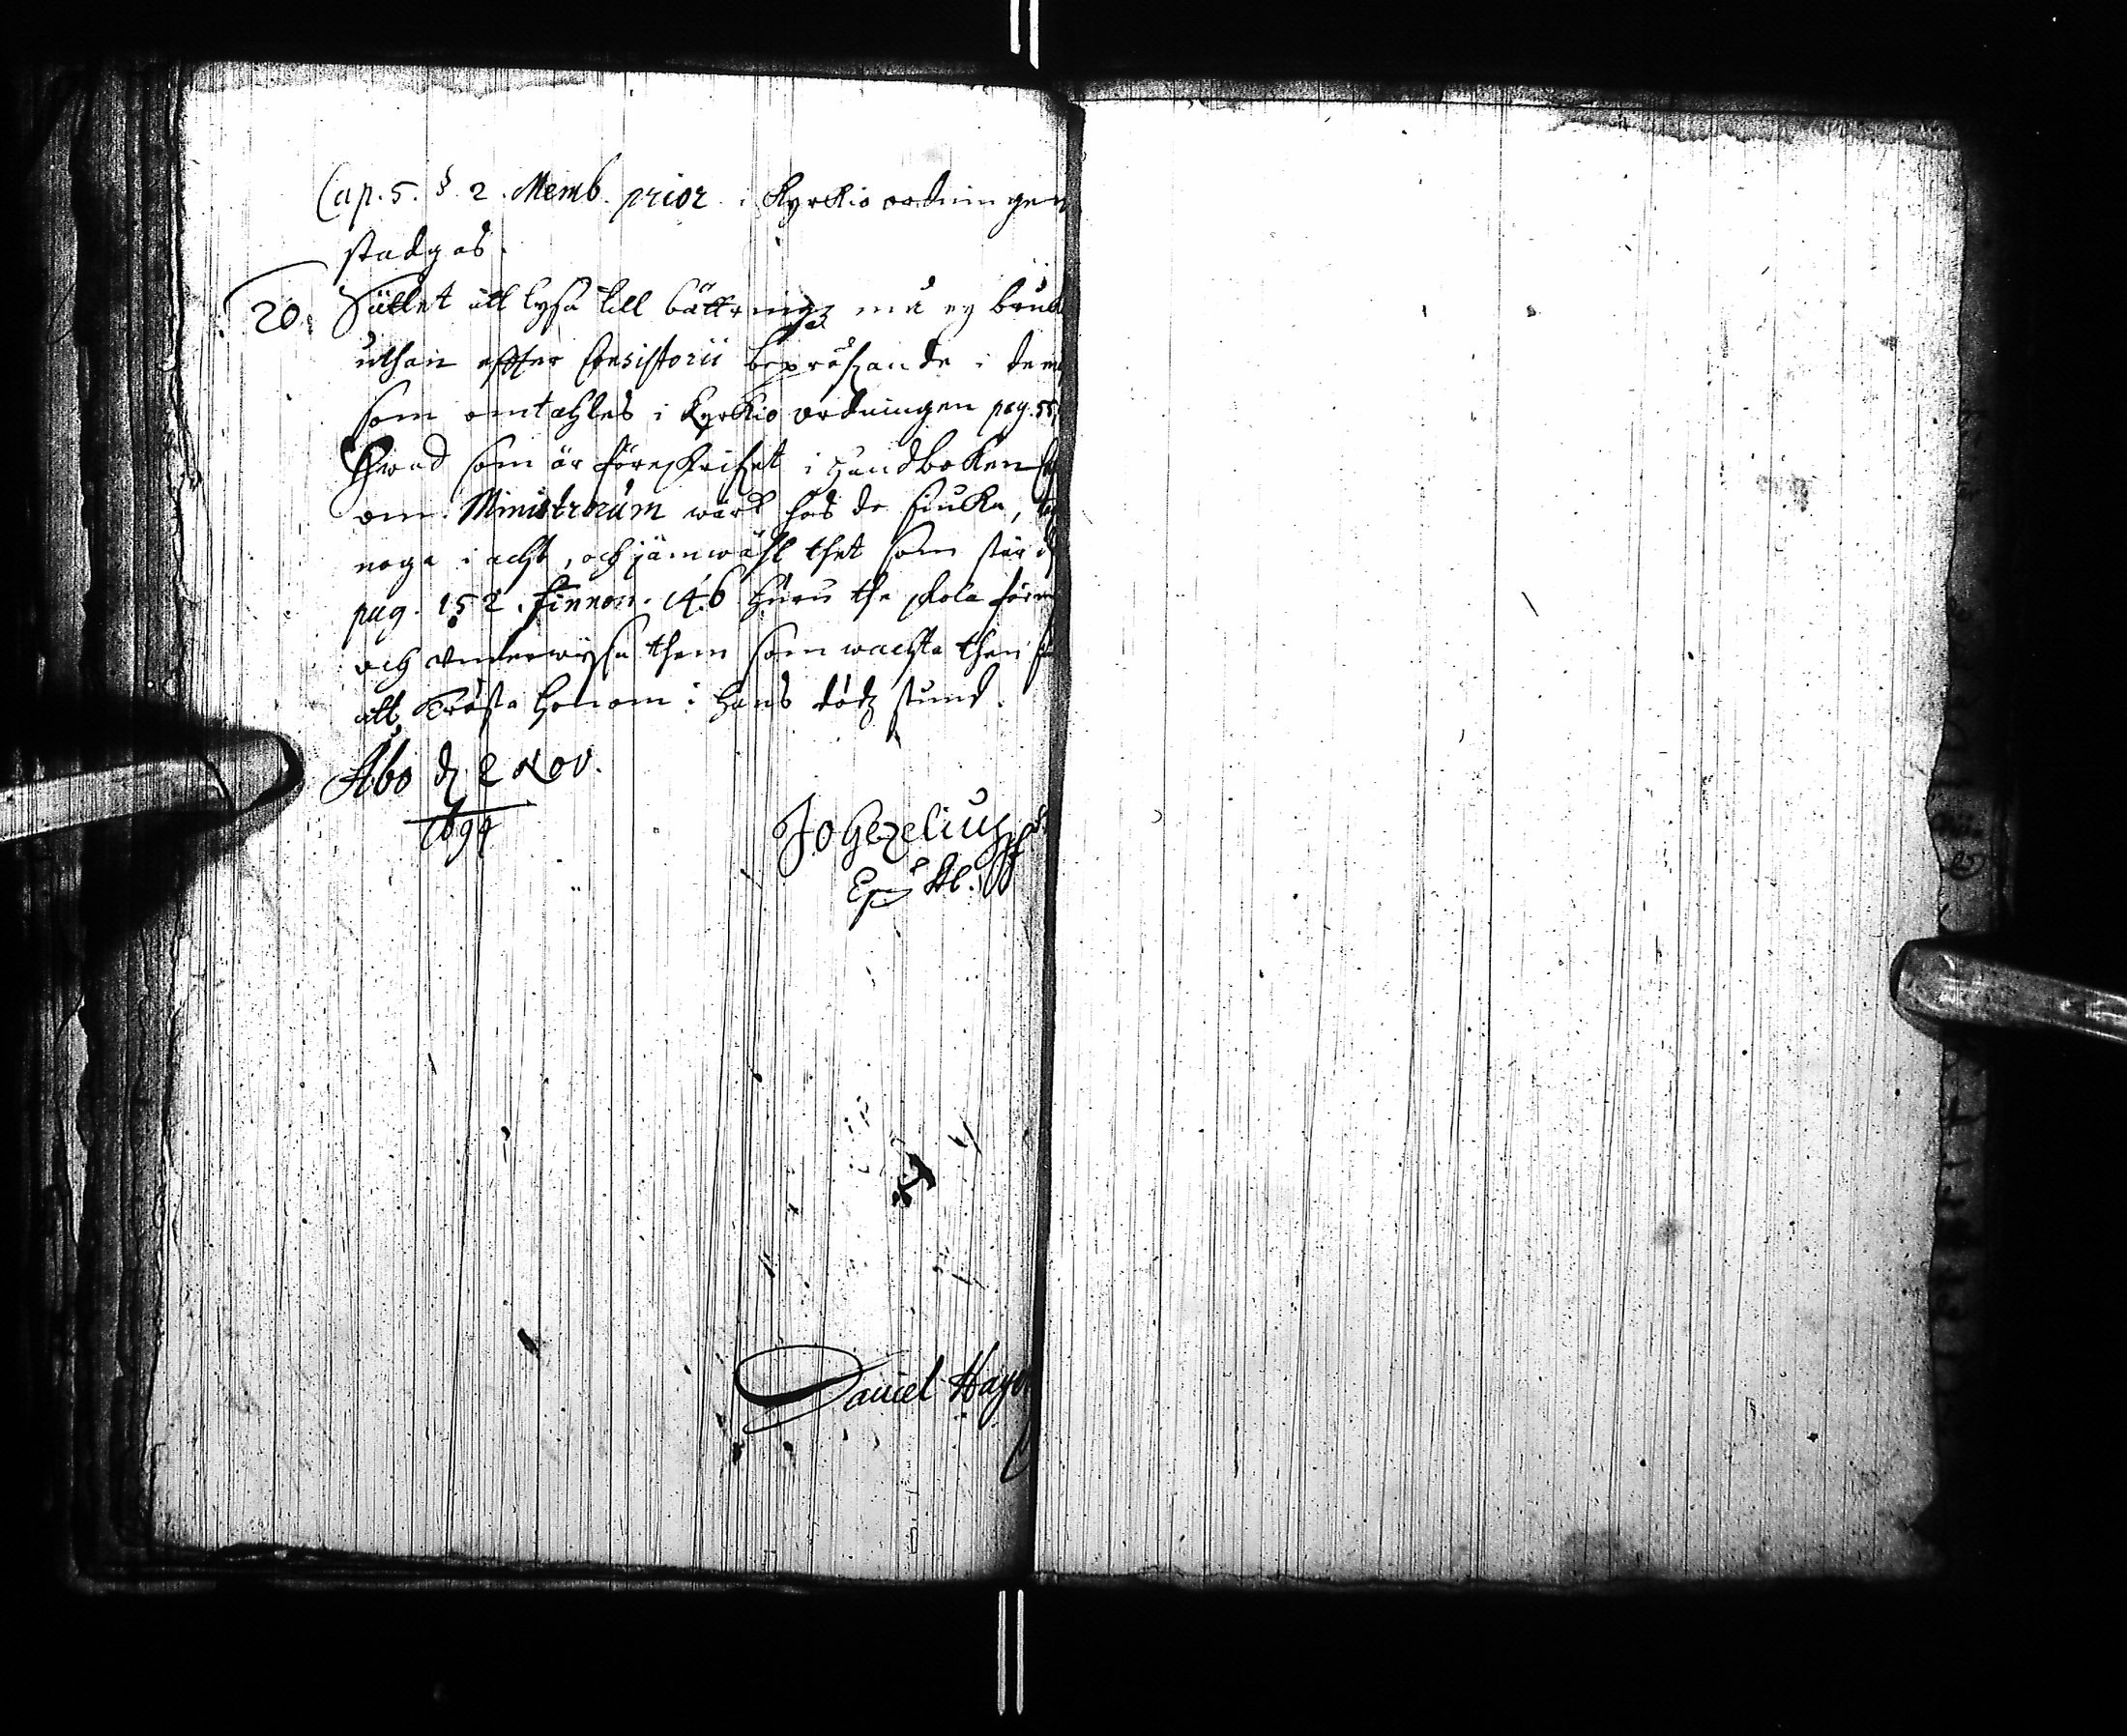 Cap. 5. § 2. Memb. prior i Kyrkio ordningen
stadgas.
20. Sättet att lysa till bättringz må ej bruk
uthan effter Consistorii bepröfvande i dem
som omtahles i Kyrkio ordningen pag. 55,
Hwad som är föreskrifvet i Handboken
om Ministrorum wärk hos de siuka,
noga i acht, och jämwähl thet som står
pag. 152. finnon. 146 huru the skola förm
och vnderwysa them som wachta then
att trösta honom i hans dödz stund.
Åbo d. 2 Nov.
1694
Jo Gezelius
Eps Ab.
Daniel Hayo